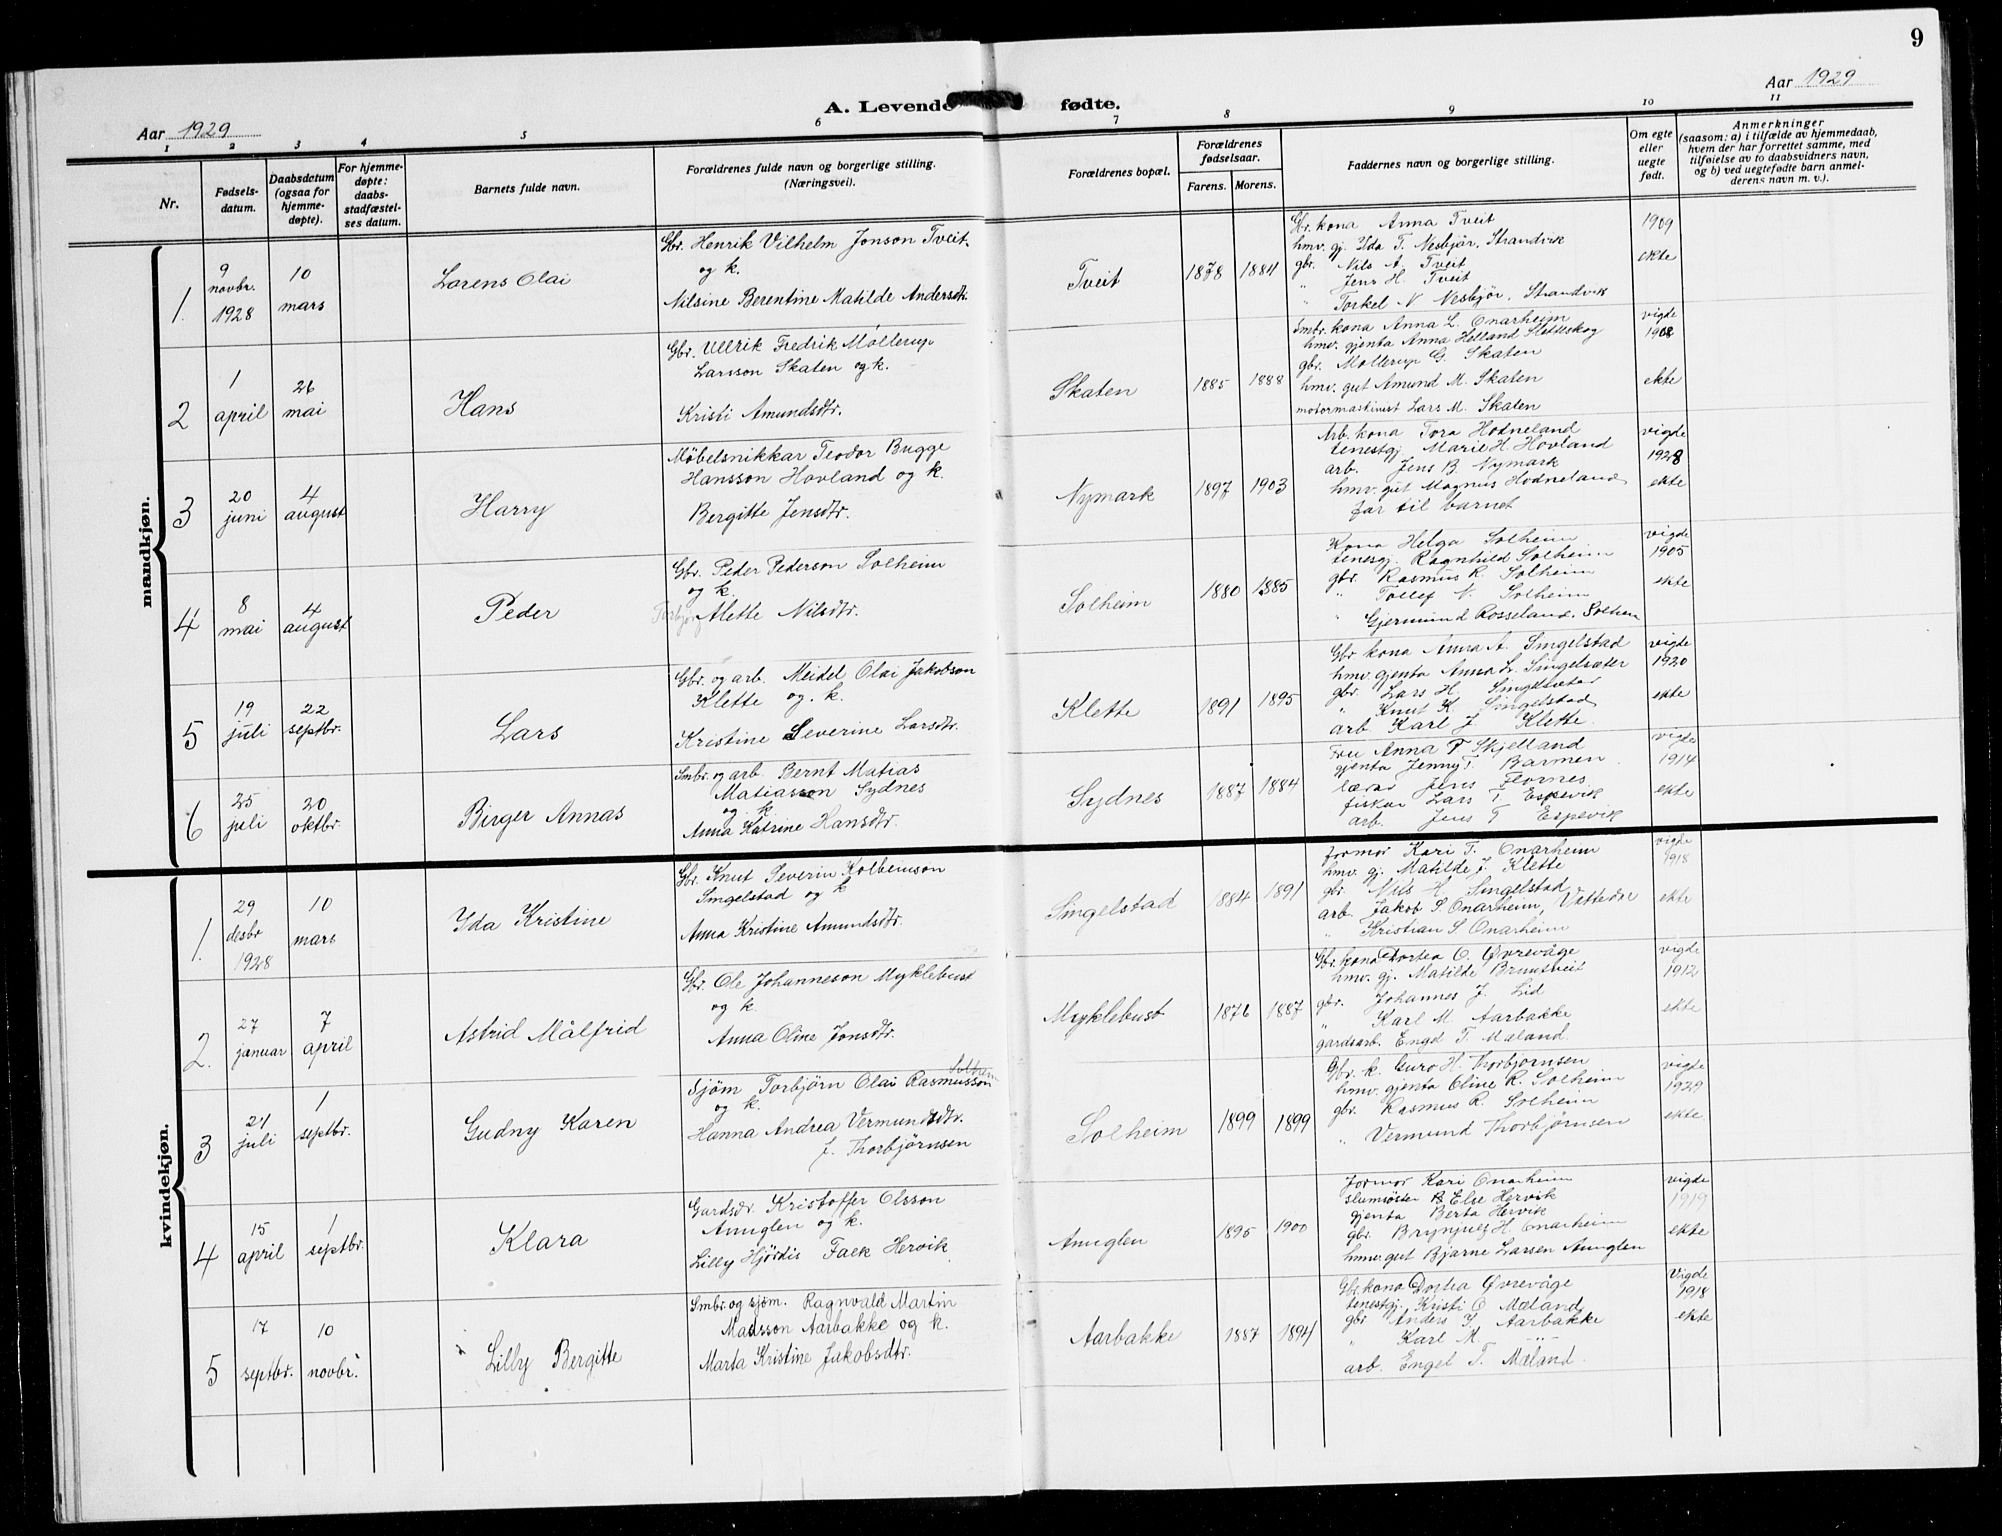 9
Aar 1929
Aar 1929
A. Levende fødte.
1 2 3 4 5 6 7 8 9 10 11
Nr.
Fødsels-
datum.
Daabsdatum
(ogsaa for
hjemme-
døpte).
For hjemme-
døpte:
daabs-
stadfæstel-
ses datum.
Barnets fulde navn.
Forældrenes fulde navn og borgerlige stilling.
(Næringsvei).
Forældrenes bopæl.
Forældrenes
fødselsaar.
Farens. Morens.
Faddernes navn og borgerlige stilling.
Om egte
eller
uegte
født.
Anmerkninger
(saasom: a) i tilfælde av hjemmedaab,
hvem der har forrettet samme, med
tilføielse av to daabsvidners navn,
og b) ved uegtefødte barn anmel-
derens navn m. v.).
mandkjøn.
1.
9
novbr.
1928
10
mars
Lorens Olai
Gbr. Henrik Vilhelm Jonson Tveit
og k.
Nilsine Berentine Matilde Andersdtr.
Tveit
1878 1884
Gbr. kona Anna Tveit
hmv. gj. Ida T. Nesbjør, Strandvik
gbr. Nils A. Tveit
" Jens H. Tveit
" Torkel N. Nesbjør, Strandvik
1909
ekte
2
1
april
26
mai
Hans
Gbr. Ullrik Fredrik Möllerup
Larsson Skaten og k.
Kristi Amundsdtr.
Skaten
1885 1888
Smbr. kona Anna L. Onarheim
hmv. gjenta Anna Helland Sletteskog
gbr. Mollerup G. Skaten
hmv. gut Amund M. Skaten
motormaskinist Lars M. Skaten
vigde
1908
ekte
3
20
juni
4
august
Harry
Møbelsnikkar Teodor Bugge
Hansson Hovland og k.
Bergitte Jensdtr.
Nymark
1897 1903
Arb. kona Tora Hodneland
tenestgj Marie H. Hovland
arb. Jens B. Nymark
hmv. gut Magnus Hodneland
far til barnet
vigde
1928
ekte
4
8
mai
4
august
Peder
Gbr. Peder Pederson Solheim
og k.
Alette Nilsdtr.
Solheim
1880 1885
Kona Helga Solheim
tenesgj. Ragnhild Solheim
gbr. Rasmus R. Solheim
" Tollef N. Solheim
" Gjermund Rosseland, Solheim
vigde
1905
ekte
5
19
juli
22
septbr.
Lars
Gbr. og arb. Meidel Olai Jakobson
Klette og. k.
Kristine Severine Larsdtr.
Klette
1891 1895
Gbr kona Anna A. Singelstad
hmv. gjenta Anna L. Singelsæter
gbr. Lars H. Singelsæter
" Knut K. Singelstad
arb. Karl J. Klette.
vigde
1920
ekte
6
25
juli
20
oktbr.
Birger Annas
Smbr. og arb. Bernt Matias
Matiasson Sydnes
og k.
Anna Katrine Hansdtr.
Sydnes
1887 1884
Fru Anna T Skjelland
gjenta Jenny T. Barmen
lærar Jens Flornes
fiskar Lars T. Espevik
arb. Jens T Espevik
vigde
1914
ekte
kvindekjøn.
1.
29
desbr
1928
10
mars
Ida Kristine
Gbr. Knut Severin Kolbeinson
Singelstad og k
Anna Kristine Amundsdtr.
Singelstad
1884 1891
formor Kari T. Onarheim
hmv. gj. Matilde J. Klette
gbr. Nils H. Singelstad
arb. Jakob S. Onarheim,
" Kristian S Onarheim
vigde
1918
ekte
2.
27
januar
7
april
Astrid Målfrid
Gbr. Ole Johanneson Myklebust
og k.
Anna Oline Jonsdtr.
Myklebust
1876 1887
Gbr. kona Dortea O. Øvrevåge
hmv. gj. Matilde Bruntveit
gbr. Johannes J. Lid
" Karl M. Aarbakke
gardsarb. Engel T. Mæland.
vigde
1912
ekte
3
21
juli
1
septbr.
Gudny Karen
Sjöm Torbjörn Olai Rasmusson Solheim
og k.
Hanna Andrea Vermundsdtr.
f. Thorbjørnsen
Solheim
1899 1899
Gbr. k. Guro H. Thorbjornsen
hmv. gjenta Oline R. Solheim
gbr. Rasmus R. Solheim
" Vermund Thorbjørnsen
vigde
1929
ekte.
4
15
april
1
septbr.
Klara
Gardsdr. Kristoffer Olsson
Anuglen og k.
Lilly Hjördis Falk Hervik
Anuglen
1895 1900
formor Kari Onarheim
B Else Hervik
gjenta Berta Hervik
gbr. Brynjulf H. Onarheim
hmv. gut Bjarne Larsen Anuglen
vigde
1919
ekte
5
17
septbr.
10
novbr.
Lilly Bergitte
Smbr. og sjöm. Ragnvald Martin
Madsson Aarbakke og k.
Marta Kristine Jakobsdtr.
Aarbakke
1887 1894
Gbr. kona Dortea Øvrevåge
tenestgj. Kristi O Mæland
gbr Anders J. Aarbakke
" Karl M. - " -
arb. Engel T. Mæland.
Vigde
1918
ekte